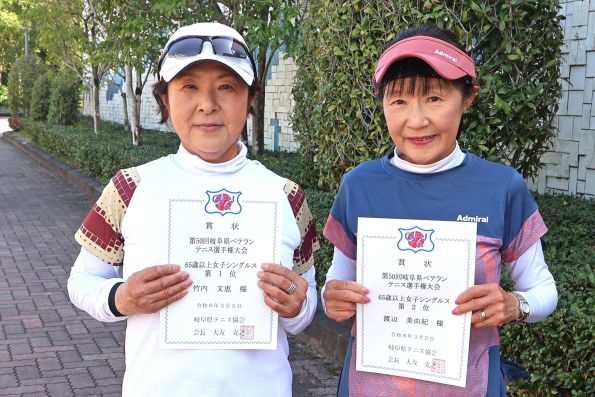 Admiral
Admiral
賞状
第50回岐阜県ベテラン
テニス選手権大会
65歳以上女子シングルス
第1位
竹内 文恵 様
令和8年3月5日
岐阜県テニス協会
会長 大友 克之
賞状
第50回岐阜県ベテラン
テニス選手権大会
65歳以上女子シングルス
第2位
渡辺 美由紀 様
令和8年3月5日
岐阜県テニス協会
会長 大友 克之